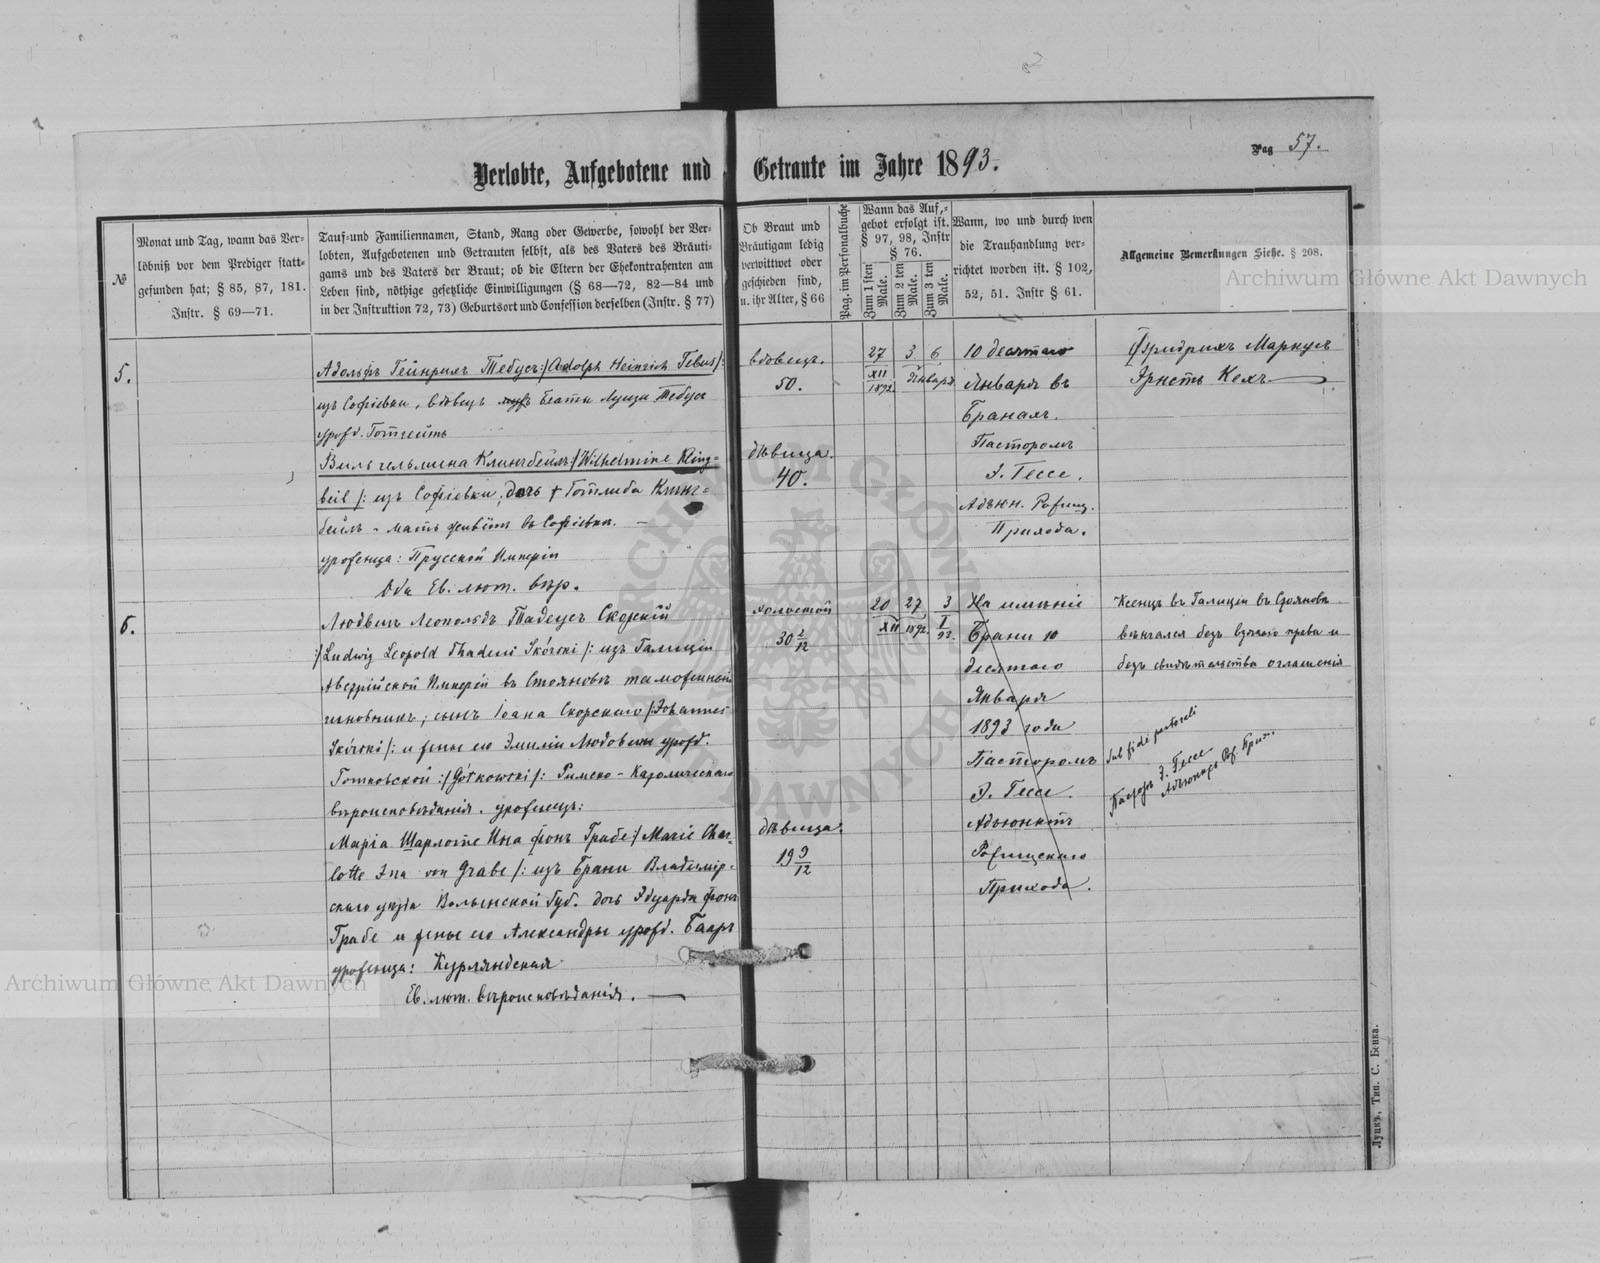 Pag 57.
Verlobte, Aufgebotene und Getraute im Jahre 1893.
№
Monat und Tag, wann das Ver-
löbniß vor dem Prediger statt-
gefunden hat; § 85, 87, 181.
Instr. § 69—71.
Tauf-und Familiennamen, Stand, Rang oder Gewerbe, sowohl der Ver-
lobten, Aufgebotenen und Getrauten selbst, als des Vaters des Bräuti-
gams und des Vaters der Braut; ob die Eltern der Ehekontrahenten am
Leben sind, nöthige gesetzliche Einwilligungen (§ 68—72, 82—84 und
in der Instruktion 72, 73) Geburtsort und Confession derselben (Instr. § 77)
Ob Braut und
Bräutigam ledig
verwittwet oder
geschieden sind,
u. ihr Alter, § 66
Pag. im Personalbuche
Wann das Auf-
gebot erfolgt ist.
§ 97, 98, Instr
§ 76.
Zum 1 sten Male.
Zum 2 ten Male.
Zum 3 ten Male.
Wann, wo und durch wen
die Trauhandlung ver-
richtet worden ist. § 102,
52, 51. Instr § 61.
Allgemeine Bemerkungen Siehe. § 208.
5.
Адольфъ Гейнрихъ Тебусъ:/Adolph Heinrich Tebus/:
изъ Софіевки, вдовецъ Беаты Луизы Тебусъ
урожд. Готтейтъ
Вильгельмина Клингбейлъ:/Wilhelmine Kling=
beil/: изъ Софіевки, дочь † Готлиба Клинг=
бейлъ - мать живётъ въ Софіевкѣ. —
уроженца: Прусской Имперіи
Оба Ев. лют. вѣр.
вдовецъ.
50.
дѣвица.
40.
27 3 6
XII
1892 Января
10 десятаго
Января въ
Бранахъ.
Пасторомъ
Э. Гессе.
Адъюн. Рожищ.
Прихода.
Фридрихъ Маркусъ
Эрнстъ Кехъ
6.
Людвигъ Леопольдъ Тадеусъ Скорскій
:/Ludwig Leopold Thadeus Skórski/: изъ Галиціи
Австрійской Имперіи въ Стояновѣ таможенный
чиновникъ, сынъ Іоана Скорскаго/Johannes
Skórski/: и жены его Эмиліи Людовики урожд.
Готковской:/Gótkowski/: Римско-Католическаго
вѣроисповѣданія. уроженецъ:
Марія Шарлотте Ина фонъ Грабе:/Marie Char=
lotte Ina von Grabe/: изъ Брани Владимір-
скаго уѣзда Волынской Губ. дочь Эдуарда фонъ
Грабе и жены его Александры урожд. Бааръ
уроженца: Курляндская
Ев. лют. вѣроисповѣданія. —
холостой
30 2/12
дѣвица.
19 9/12
20 27 3
XII 1892. I 93.
На имѣніе
Брани 10
десятаго
Января
1893 года
Пасторомъ
Э. Гессе.
Адъюнктъ
Рожищскаго
Прихода.
Ксендзъ въ Галиціи въ Стояновѣ
вѣнчался безъ права и
безъ свидѣтельства оглашенія
Sub fide pastorali
Пасторъ Э. Гессе
Адъюнктъ Рож. Прих.
Archiwum Główne Akt Dawnych
Archiwum Główne Akt Dawnych
ARCHIWUM GŁÓWNE AKT DAWNYCH
Луцкъ, Тип. С. Бенка.